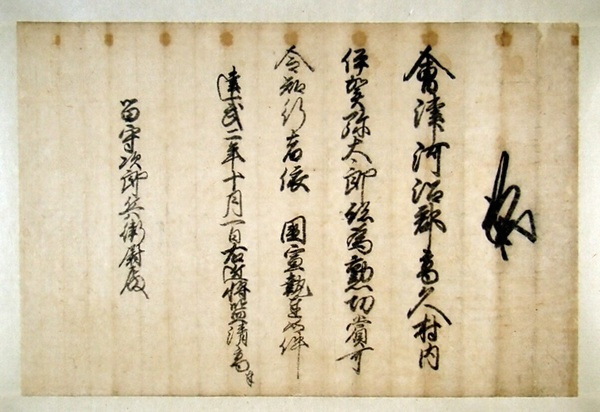 會津河沼郡高久村内
伊賀弥太郎跡為勲功賞可
令知行者依 國宣執達如件
建武二年十月一日右近将監清高奉
留守次郎兵衛尉殿